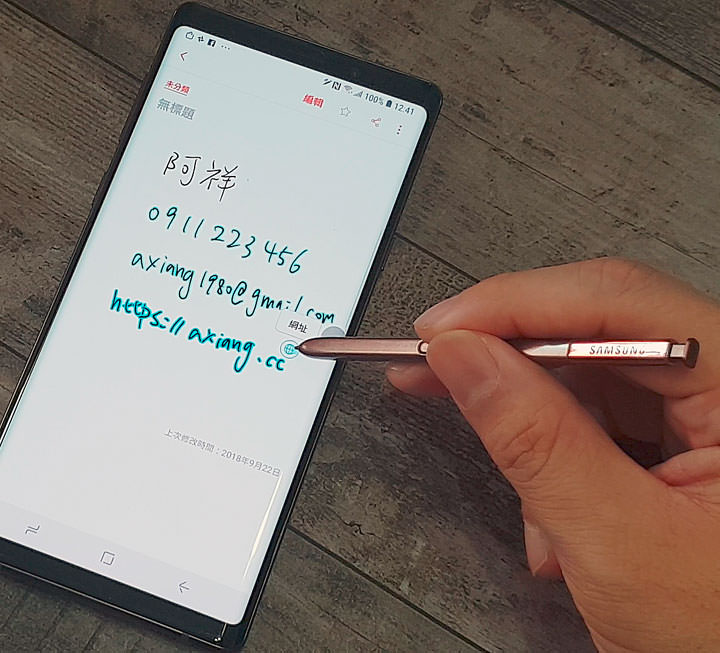 100% 12:41
未分類
編輯
無標題
阿祥
0911 223 456
axiang1980@gmail.com
網址
https://axiang.cc
上次修改時間：2018年9月22日
SAMSUNG